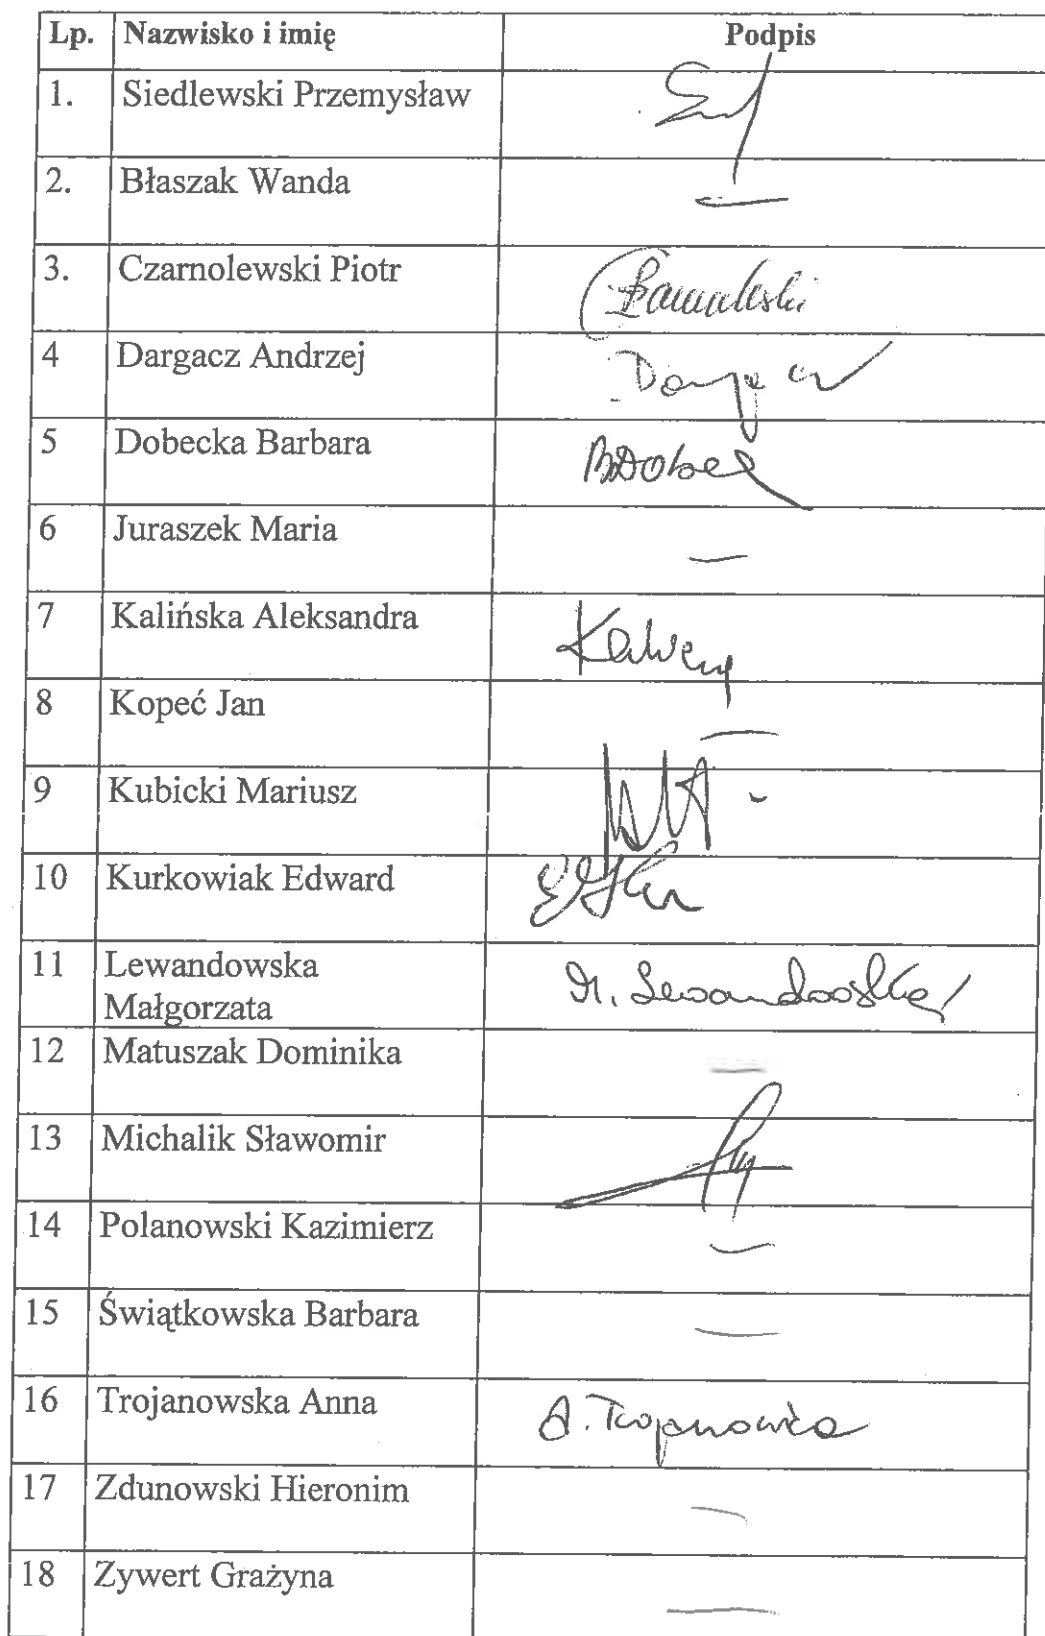 Lp. Nazwisko i imię Podpis
1. Siedlewski Przemysław
2. Błaszak Wanda —
3. Czarnolewski Piotr
4 Dargacz Andrzej
5 Dobecka Barbara
6 Juraszek Maria —
7 Kalińska Aleksandra
8 Kopeć Jan —
9 Kubicki Mariusz -
10 Kurkowiak Edward
11 Lewandowska M. Lewandowska
Małgorzata
12 Matuszak Dominika —
13 Michalik Sławomir
14 Polanowski Kazimierz —
15 Świątkowska Barbara —
16 Trojanowska Anna A. Trojanowska
17 Zdunowski Hieronim —
18 Zywert Grażyna —